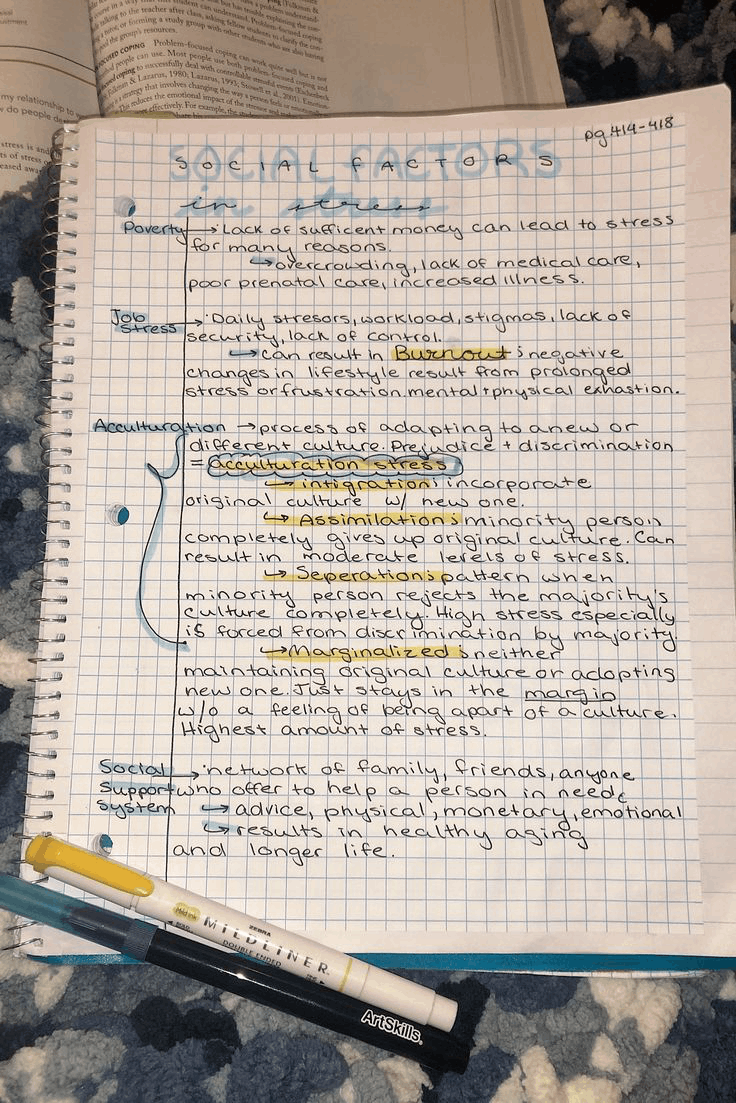 ping (Folkman &
course in a way that this student can understand. Problem-focused
talking to the teacher after class, asking fellow students to clarify the con-
a tutor, or forming a study group with other students who are also having
the group's resources.
FOCUSED COPING Problem-focused coping can work quite well but is not
people can use. Most people use both problem-focused coping and
coping to successfully deal with controllable stressful events (Eschenbeck
Folkman & Lazarus, 1980; Lazarus, 1993; Stowell et al., 2001). Emotion-
is a strategy that involves changing the way a person feels or emotionally
This reduces the emotional impact of the stressor and makes it
more effectively. For example, the student
my relationship to
do people de
stress is and
ts of stress o
eased awa
pg 414-418
SOCIAL FACTORS
SOCIAL FACTORS
in stress
Poverty → Lack of sufficent money can lead to stress
for many reasons.
↳ overcrowding, lack of medical care,
poor prenatal care, increased illness.
Job
stress → Daily stresors, workload, stigmas, lack of
security, lack of control.
↳ can result in Burnout: negative
changes in lifestyle result from prolonged
stress or frustration. mental + physical exhastion.
Acculturation → process of adapting to a new or
different culture. Prejudice + discrimination
= acculturation stress
↳ intigration: incorporate
original culture w/ new one.
↳ Assimilation: minority person
completely gives up original culture. Can
result in moderate levels of stress.
↳ Seperation: pattern when
minority person rejects the majority's
culture completely. High stress especially
if forced from discrimination by majority.
↳ Marginalized: neither
maintaining original culture or adopting
new one. Just stays in the margin
w/o a feeling of being apart of a culture.
Highest amount of stress.
Social → network of family, friends, anyone
support who offer to help a person in need
system ↳ advice, physical, monetary, emotional
↳ results in healthy aging
and longer life.
Mild ink
ZEBRA
MILDLINER
DOUBLE ENDED
ArtSkills